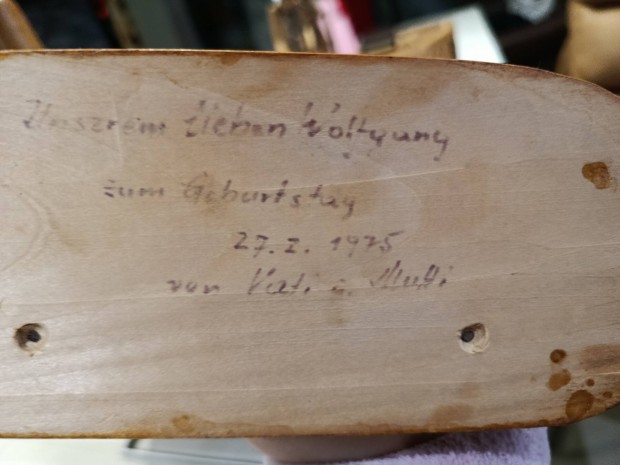 Unserem lieben Wolfgang
zum Geburtstag
27. I. 1975
von Vati u. Mutti